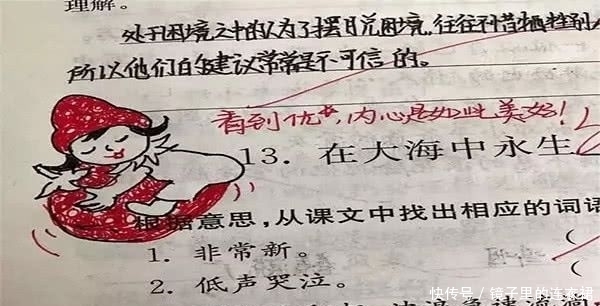 理解。
处于困境之中的人为了摆脱困境,往往不惜牺牲别人
所以他们的建议常常是不可信的。
看到优+,内心是如此美好!
13. 在大海中永生
根据意思,从课文中找出相应的词语
1. 非常新。
2. 低声哭泣。
快传号 / 镜子里的连衣裙